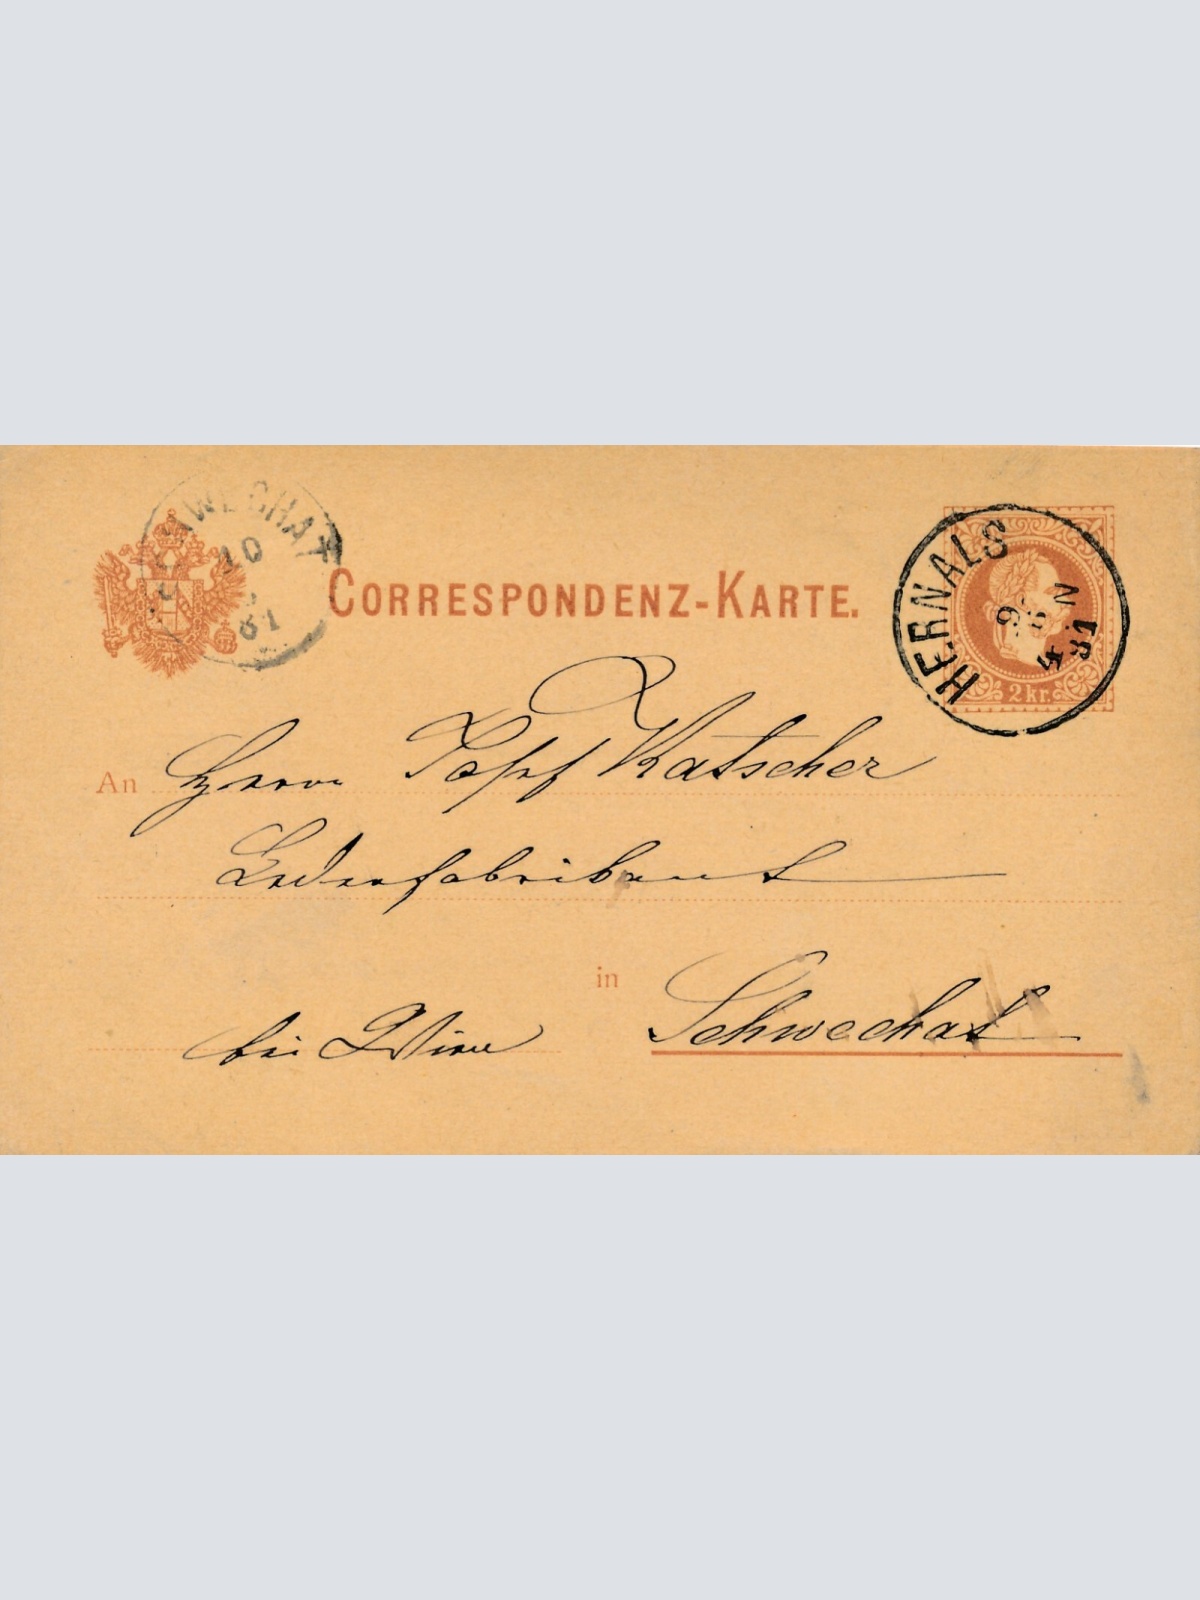 SCHWECHAT
10
81
CORRESPONDENZ-KARTE.
HERNALS
9
4 N
81
2 kr.
An Herrn Josef Katscher
Lederfabrikant
in Schwechat
bei Wien